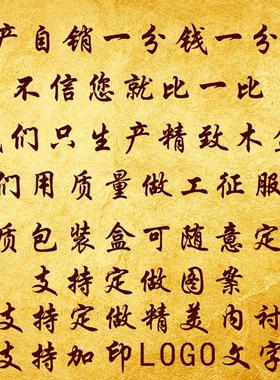 产自销一分钱一分
不信您就比一比
们只生产精致木
们用质量做工征服
质包装盒可随意定
支持定做图案
支持定做精美内衬
支持加印LOGO文字